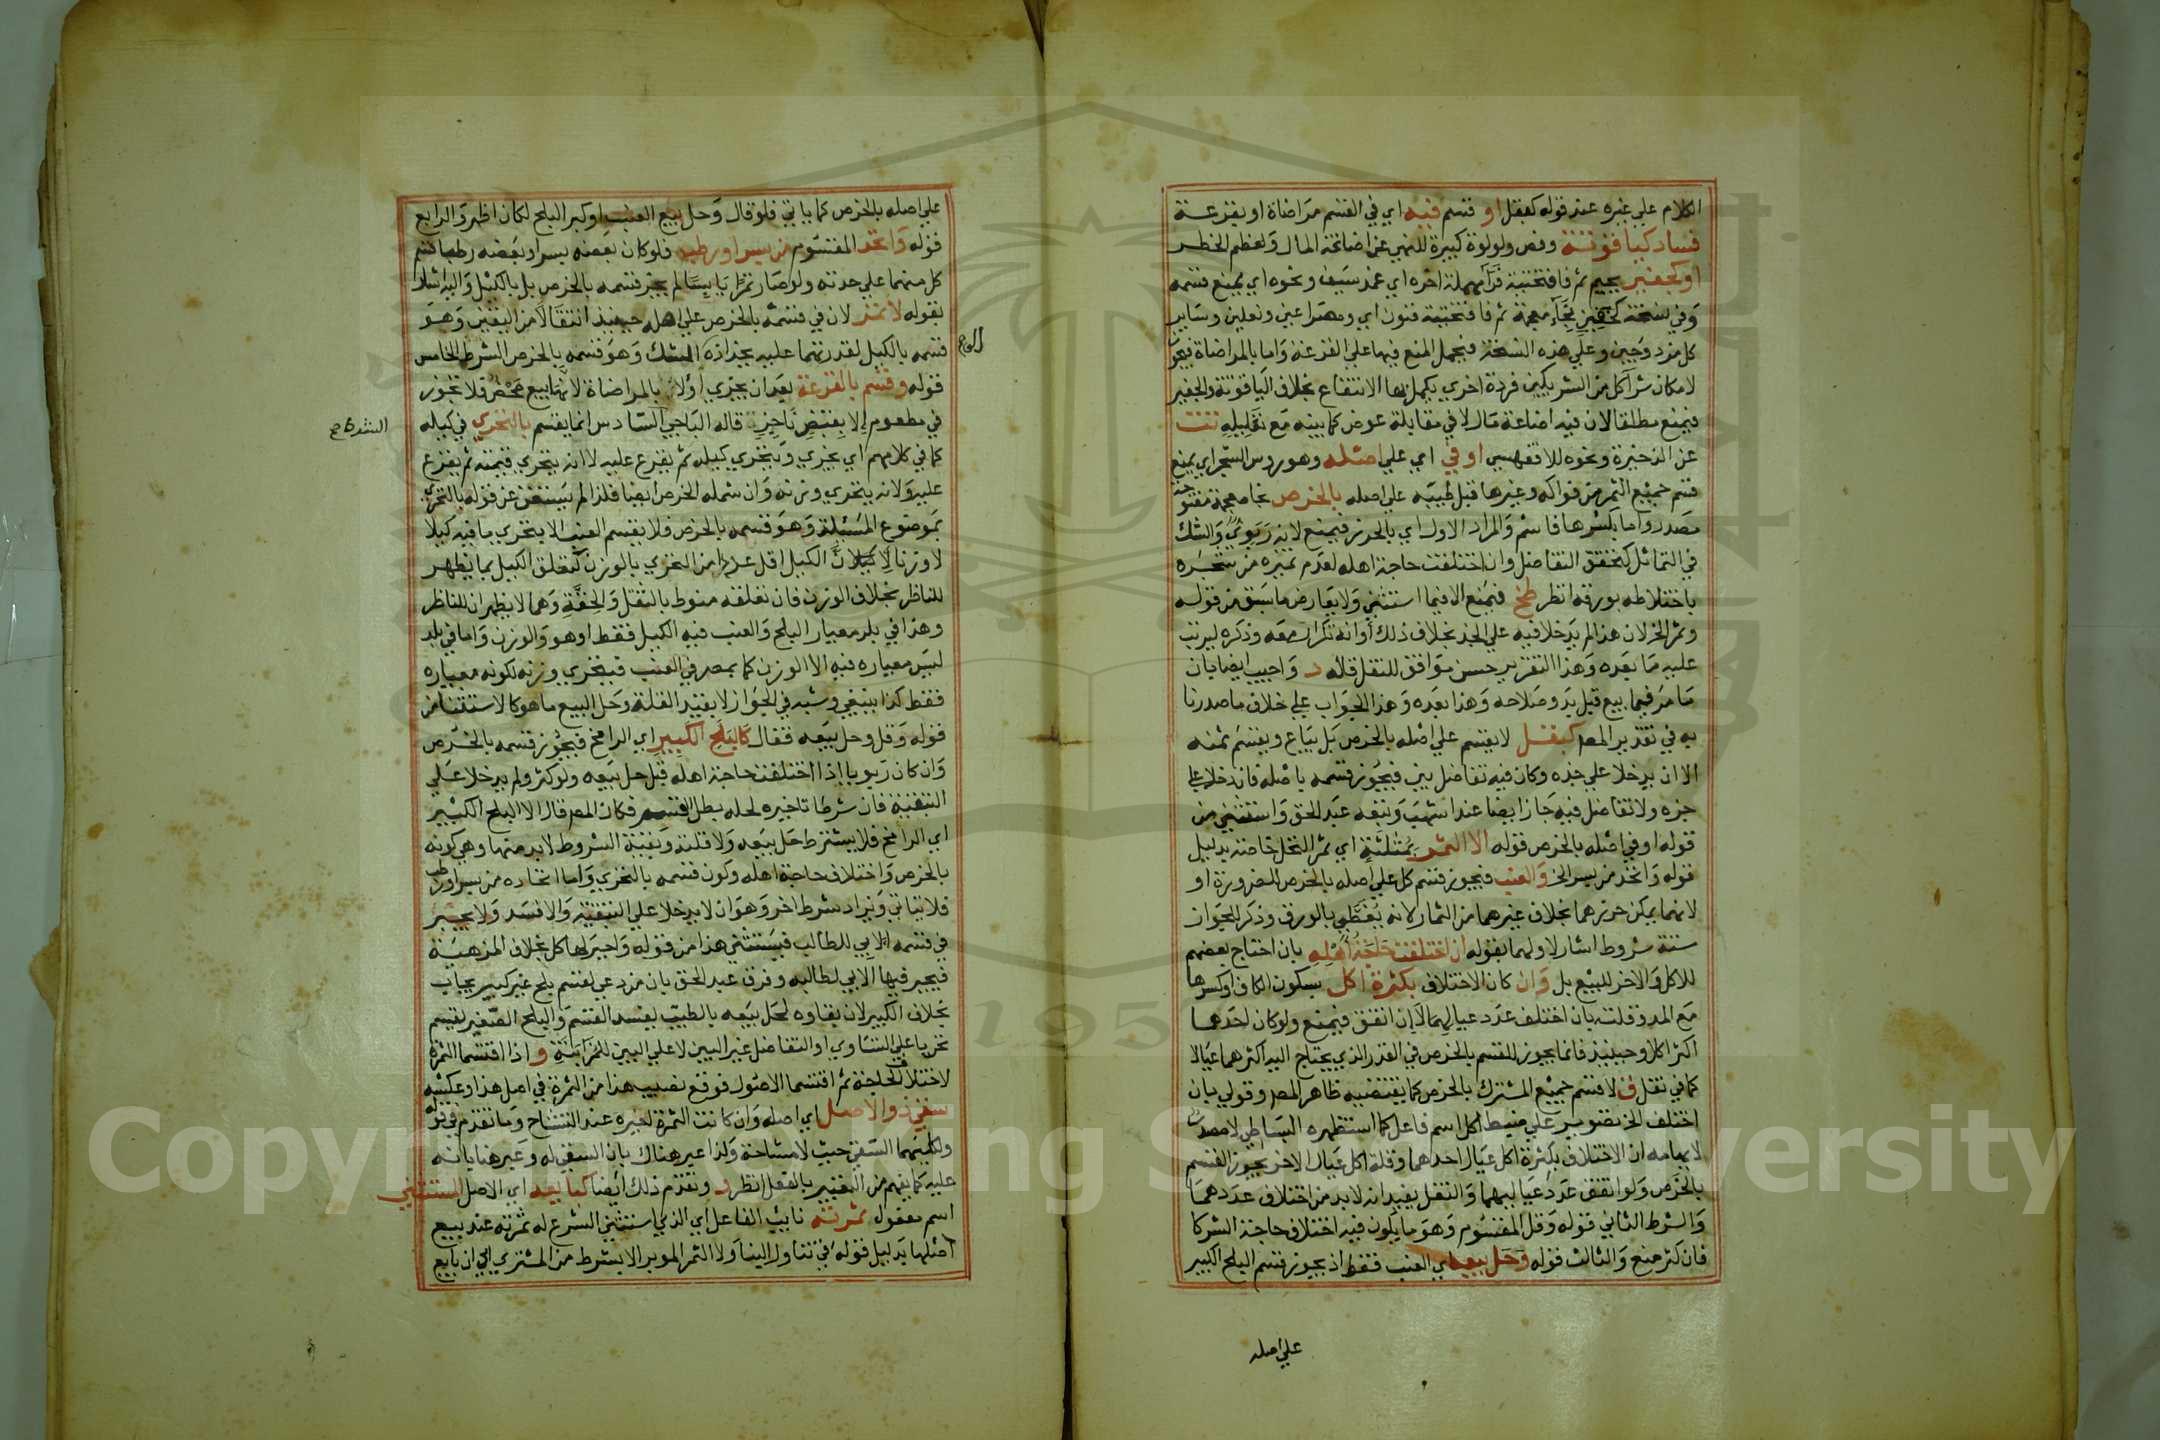 الكلام علي غيره عند قوله كبقل او قسم فيه اي في القسم مراضاة او بقرعة
فساد كياقوتة وفص ولولوة كبيرة للنهي عن اضاعة المال ولعظم الخطر
او كجفير بجيم ثم فا فتحتية فرا مهملة اخره اي غمد سيف ونحوه اي يمنع قسمه
وفي نسخة كخفين بخاء معجمة ثم فا فتحتية فنون اي ومصراعين ونعلين وساير
كل مزدوجين وعلي هذه النسخة فيحمل المنع فيها علي القرعة واما بالمراضاة فيجوز
لامكان شرا كل من الشريكين فردة اخري يكمل بها الانتفاع بخلاف الياقوتة والجفير
فيمنع مطلقا لان فيه اضاعة مال لا في مقابلة عوض كما بينه مع تعليله تت
عن الذخيرة ونحوه للاقفهسي او في اي علي اصله وهو روس الشجر اي يمنع
قسم جميع الثمر من فواكه وغيرها قبل طيبه علي اصله بالخرص بخا معجمة مفتوحة
مصدر واما بكسرها فاسم والمراد الاول اي بالحزر فيمنع لانه ربوي والشك
في التماثل كتحقق التفاضل وان اختلفت حاجة اهله لعدم تميزه من شجره
باختلاطه بورقه انظر طخ فيمنع الا فيما استثني ولا يعارض ما سبق من قوله
وثمر الخ لان هذا لم يدخلا فيه علي الجذ بخلاف ذلك او انه تكرار معه وذكره ليرتب
عليه ما بعده وهذا التقرير حسن موافق للنقل قاله د واجيب ايضا بان
ما مر فيما بيع قبل بدو صلاحه وهذا بعده وهذا الجواب علي خلاف ما صدرنا
به في تقدير المص كبقل لا يقسم علي اصله بالخرص بل يباع ويقسم ثمنه
الا ان يدخلا علي جذه وكان فيه تفاضل بين فيجوز قسمه باصله فان دخلا علي
جزه ولا تفاضل فيه جاز ايضا عند اشهب وتبعه عبد الحق واستثني من
قوله او في اصله بالخرص قوله الا الثمر بمثلثة اي ثمر النخل خاصة بدليل
قوله واتحد من بسر الخ والعنب فيجوز قسم كل علي اصله بالخرص للضرورة او
لانهما يمكن حزرهما بخلاف غيرهما من الثمار لانه يغطي بالورق وذكر للجواز
ستة شروط اشار لاولها بقوله ان اختلفت حاجة اهله بان احتاج بعضهم
للاكل والاخر للبيع بل وان كان الاختلاف بكثرة اكل بسكون الكاف او كسرها
مع المد وقلته بان اختلف عدد عيالهما لا ان اتفق فيمنع ولو كان احدهما
اكثر اكلا وحينئذ فانما يجوز القسم بالخرص في القدر الذي يحتاج اليه اكثرهما عيالا
كما في نقل ق لا قسم جميع المشترك بالخرص كما يقتضيه ظاهر المص وقولي بان
اختلف الخ تصوير علي ضبط اكل اسم فاعل كما استظهره البساطي لا مصدر
لايهامه ان الاختلاف بكثرة اكل عيال احدهما وقلة اكل عيال الاخر يجوز القسم
بالخرص ولو اتفق عدد عياليهما والنقل يفيد انه لا بد من اختلاف عددهما
والشرط الثاني قوله وقل المقسوم وهو ما يكون فيه اختلاف حاجة الشركا
فان كثر منع والثالث قوله وحل بيعه اي العنب فقط اذ يجوز قسم البلح الكبير
علي اصله
علي اصله بالخرص كما ياتي فلو قال وحل بيع العنب او كبر البلح لكان اظهر والرابع
قوله واتحد المقسوم من بسر او رطب فلو كان بعضه بسر او بعضه رطبا قسم
كل منهما علي حدته ولو صار تمرا يابسا لم يجز قسمه بالخرص بل بالكيل واليه اشار
بقوله لا تمر لان في قسمه بالخرص علي اصله حينئذ انتقالا من اليقين وهو
قسمه بالكيل لقدرتهما عليه بجذاذه الي الشك وهو قسمه بالخرص الشرط الخامس
قوله وقسم بالقرعة بعد ان يجزي اولا لا بالمراضاة لانها بيع محض فلا تجوز
في مطعوم الا بقبض ناجز قاله الباجي السادس انما يقسم بالتحري في كيله
كما في كلامهم اي يجزي ويتحري كيله ثم يقرع عليه لا انه يتحري قيمته ثم يقرع
عليه ولا انه يتحري وزنه وان شمله الخرص ايضا فلذا لم يستغن عن قوله بالتحري
بموضوع المسئلة وهو قسمه بالخرص فلا يقسم العنب الا بتحري ما فيه كيلا
لا وزنا لان الكيل اقل غررا من التحري بالوزن لتعلق الكيل بما يظهر
للناظر بخلاف الوزن فان تعلقه منوط بالثقل والخفة وهما لا يظهران للناظر
وهذا في بلد معيار البلح والعنب فيه الكيل فقط او هو والوزن واما في بلد
ليس معياره فيه الا الوزن كما بمصر في العنب فيتحري وزنه لكونه معياره
فقط كذا ينبغي وشبه في الجواز لا بقيد القلة وحل البيع ما هو كالاستثنا من
قوله وقل وحل بيعه فقال كالبلح الكبير اي الرامخ فيجوز قسمه بالخرص
وان كان ربويا اذا اختلفت حاجة اهله قبل حل بيعه ولو كثر ولم يدخلا علي
التبقية فان شرطا تاخيره لحله بطل القسم فكان المص قال الا البلح الكبير
اي الرامخ فلا يشترط حل بيعه ولا قلته وبقية الشروط لا بد منها وهي كونه
بالخرص واختلاف حاجة اهله وكون قسمه بالتحري واما اتحاده من بسر او رطب
فلا يتاتي ويزاد شرط اخر وهو ان لا يدخلا علي التبقية والا فسد ولا يجبر
في قسمه الابي للطالب فيستثني هذا من قوله واجبر لها كل بخلاف المزهية
فيجبر فيها الابي لطالبه وفرق عبد الحق بان مزدعي لقسم بلح غير كبير يجاب
بخلاف الكبير لان بقاوه لحل بيعه بالطيب يفسد القسم والبلح الصغير يقسم
تحريا علي التساوي او التفاضل غير البين لا علي البين للمزابنة و اذا اقتسما الثمرة
لاختلاف الحاجة ثم اقتسما الاصول فوقع نصيب هذا من الثمرة في اصل هذا وعكسه
سقي ذو الاصل اي اصله وان كانت الثمرة لغيره عند التشاح وما تقدم في قوله
ولكليهما السقي حيث لا مشاحة ولذا عبر هناك بان السقي له وعبر هنا بانه
عليه كما يفهم من التعبير بالفعل انظر د وتقدم ذلك ايضا كبايعه اي الاصل المستثني
اسم مفعول ثمرته نايب الفاعل اي الذي استثني الشرع له ثمرته عند بيع
اصلها بدليل قوله في تناول البنا ولا الثمر الموبر الا بشرط من المشتري اي ان بايع